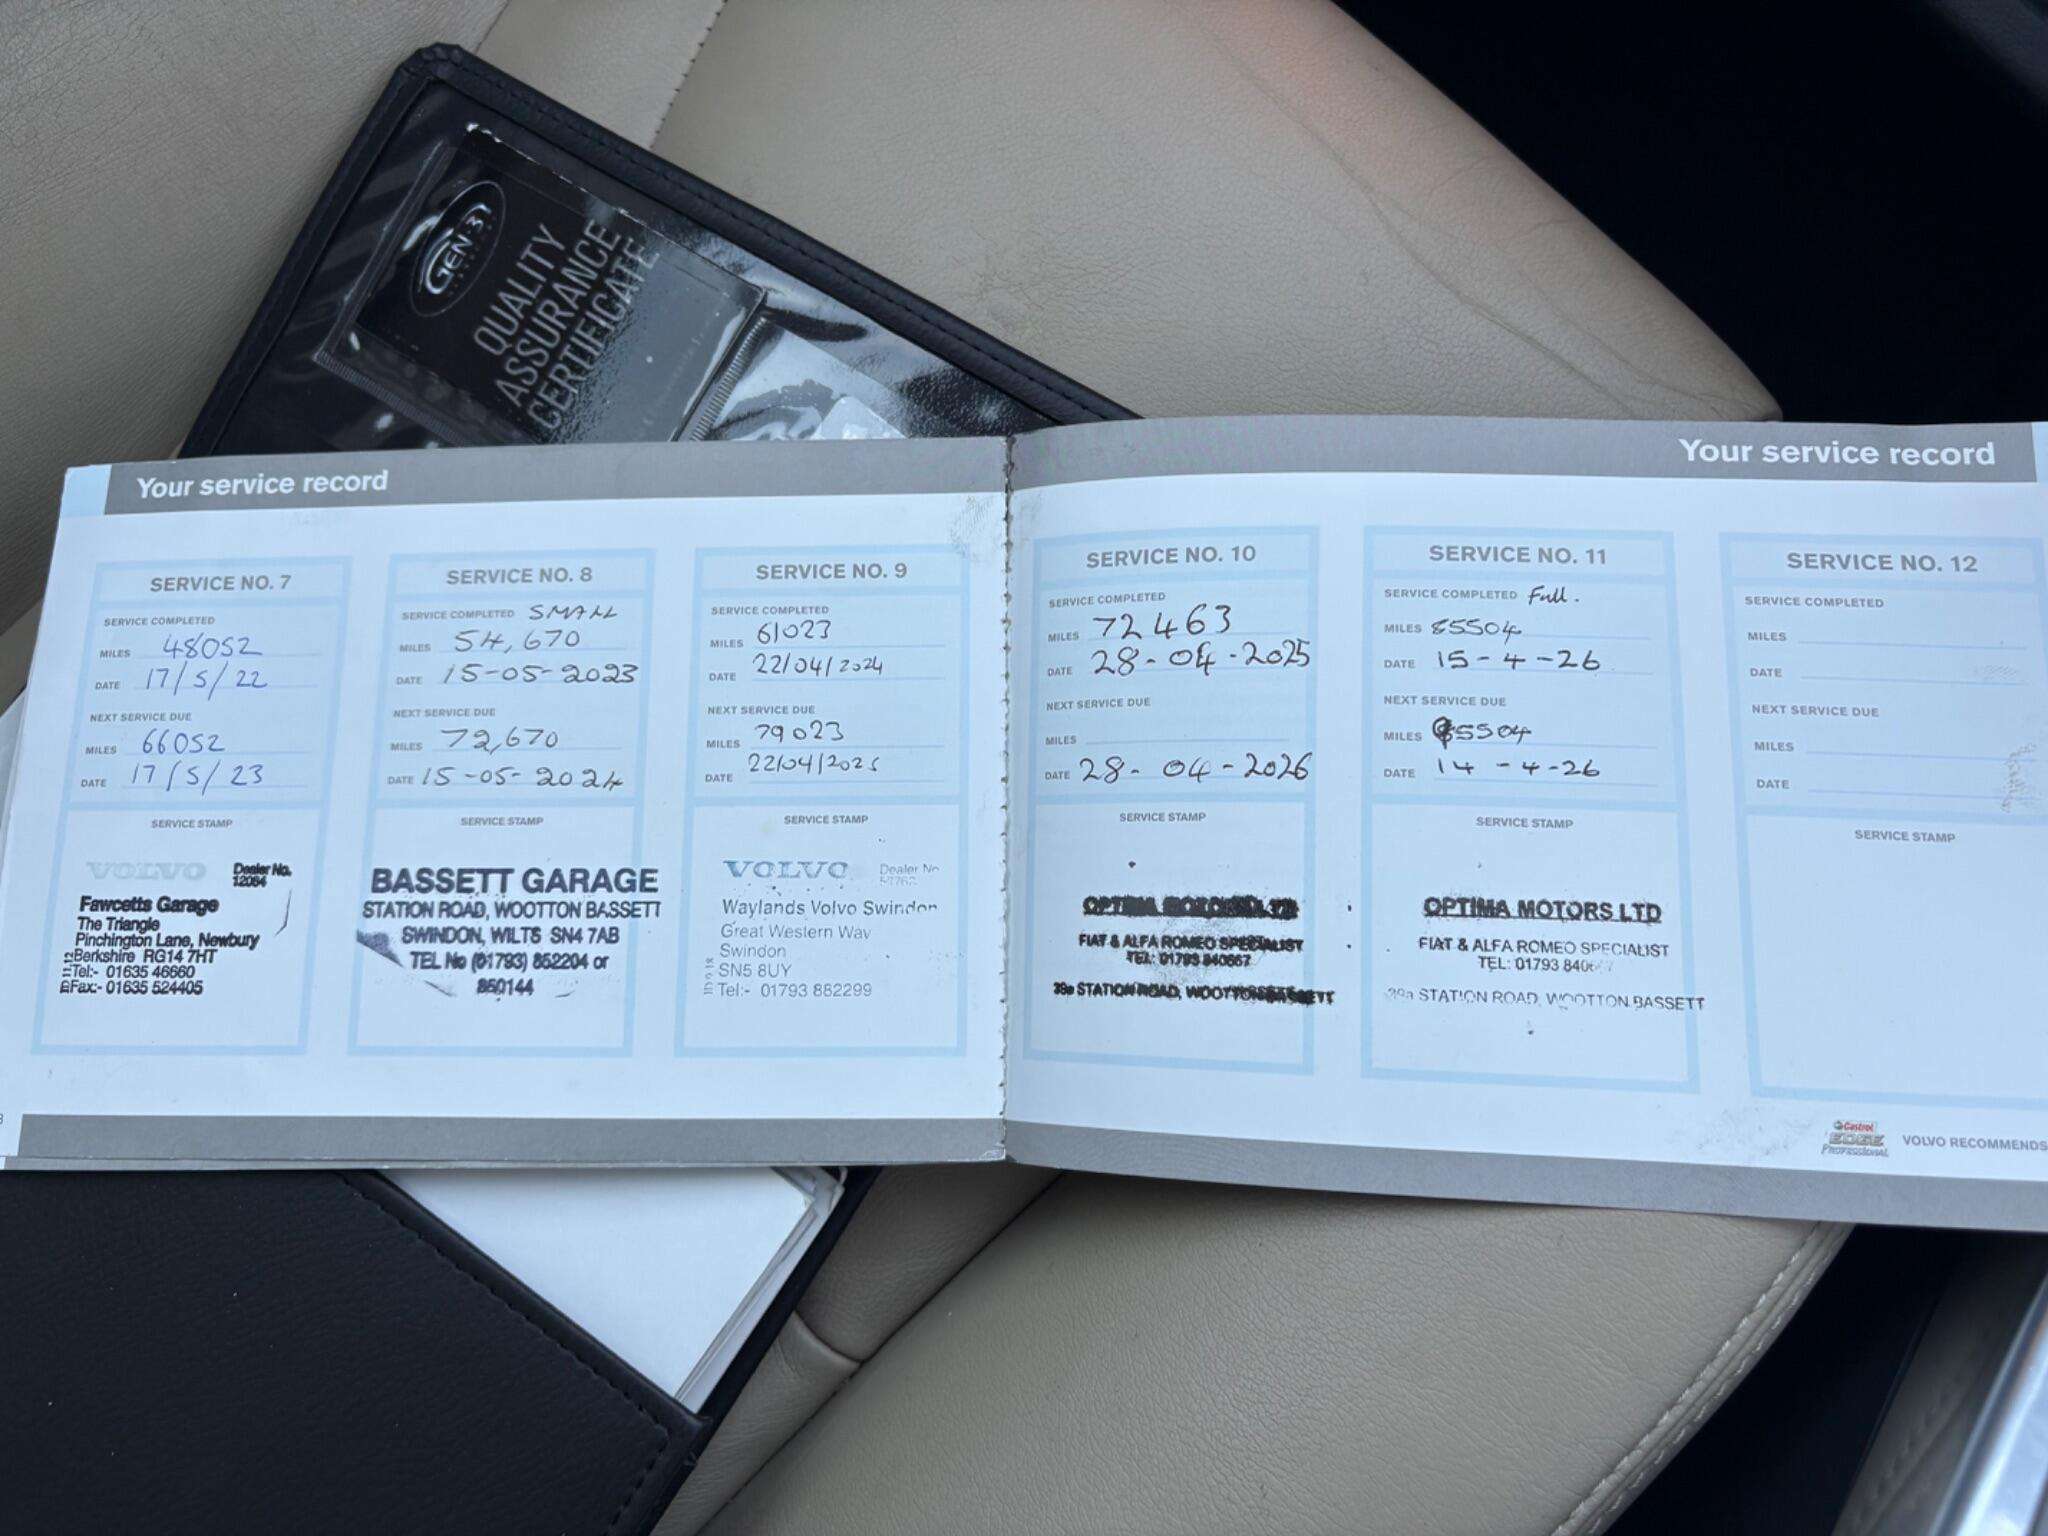 GEN-3
QUALITY
ASSURANCE
CERTIFICATE
Your service record
SERVICE NO. 7
SERVICE COMPLETED
MILES 48052
DATE 17/5/22
NEXT SERVICE DUE
MILES 66052
DATE 17/5/23
SERVICE STAMP
VOLVO Dealer No.
12064
Fawcetts Garage
The Triangle
Pinchington Lane, Newbury
Berkshire RG14 7HT
Tel:- 01635 46660
Fax:- 01635 524405
SERVICE NO. 8
SERVICE COMPLETED SMALL
MILES 54,670
DATE 15-05-2023
NEXT SERVICE DUE
MILES 72,670
DATE 15-05-2024
SERVICE STAMP
BASSETT GARAGE
STATION ROAD, WOOTTON BASSETT
SWINDON, WILTS SN4 7AB
TEL No (01793) 852204 or
850144
SERVICE NO. 9
SERVICE COMPLETED
MILES 61023
DATE 22/04/2024
NEXT SERVICE DUE
MILES 79023
DATE 22/04/2025
SERVICE STAMP
VOLVO Dealer No
Waylands Volvo Swindon
Great Western Way
Swindon
SN5 8UY
Tel:- 01793 882299
Your service record
SERVICE NO. 10
SERVICE COMPLETED
MILES 72463
DATE 28-04-2025
NEXT SERVICE DUE
MILES
DATE 28-04-2026
SERVICE STAMP
OPTIMA MOTORS LTD
FIAT & ALFA ROMEO SPECIALIST
TEL: 01793 840667
39a STATION ROAD, WOOTTON BASSETT
SERVICE NO. 11
SERVICE COMPLETED Full.
MILES 85504
DATE 15-4-26
NEXT SERVICE DUE
MILES 95504
DATE 14-4-26
SERVICE STAMP
OPTIMA MOTORS LTD
FIAT & ALFA ROMEO SPECIALIST
TEL: 01793
39a STATION ROAD, WOOTTON BASSETT
SERVICE NO. 12
SERVICE COMPLETED
MILES
DATE
NEXT SERVICE DUE
MILES
DATE
SERVICE STAMP
Castrol
EDGE
Professional
VOLVO RECOMMENDS